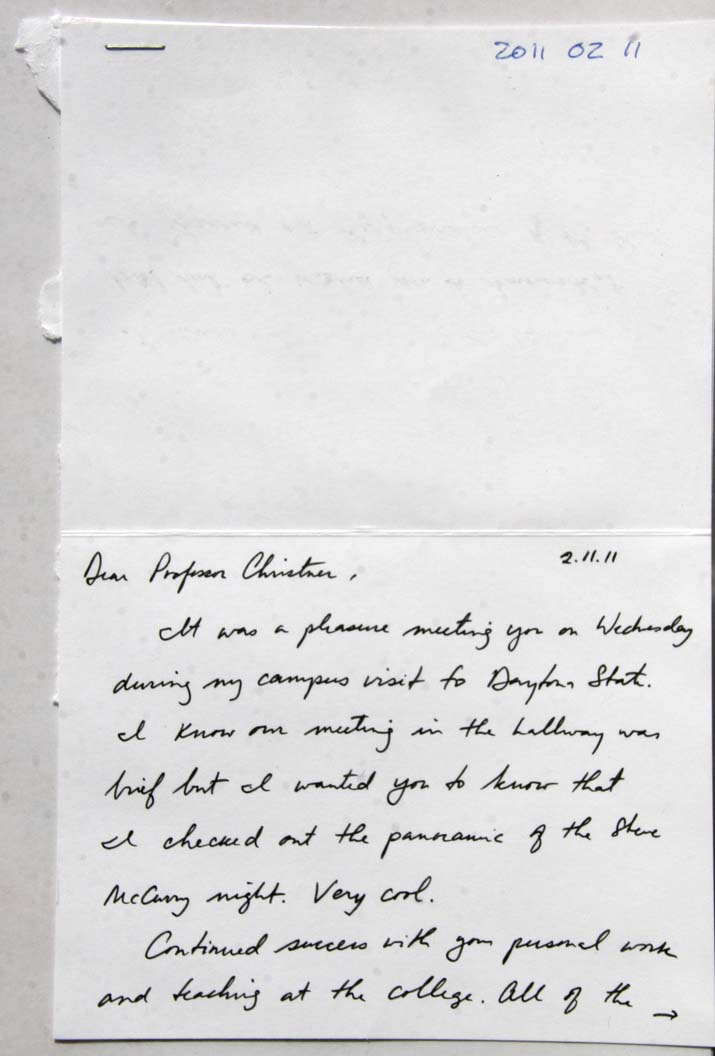 2011 02 11
2.11.11
Dear Professor Christner,
It was a pleasure meeting you on Wednesday
during my campus visit to Daytona State.
I know our meeting in the hallway was
brief but I wanted you to know that
I checked out the panoramic of the Steve
McCurry night. Very cool.
Continued success with your personal work
and teaching at the college. All of the →